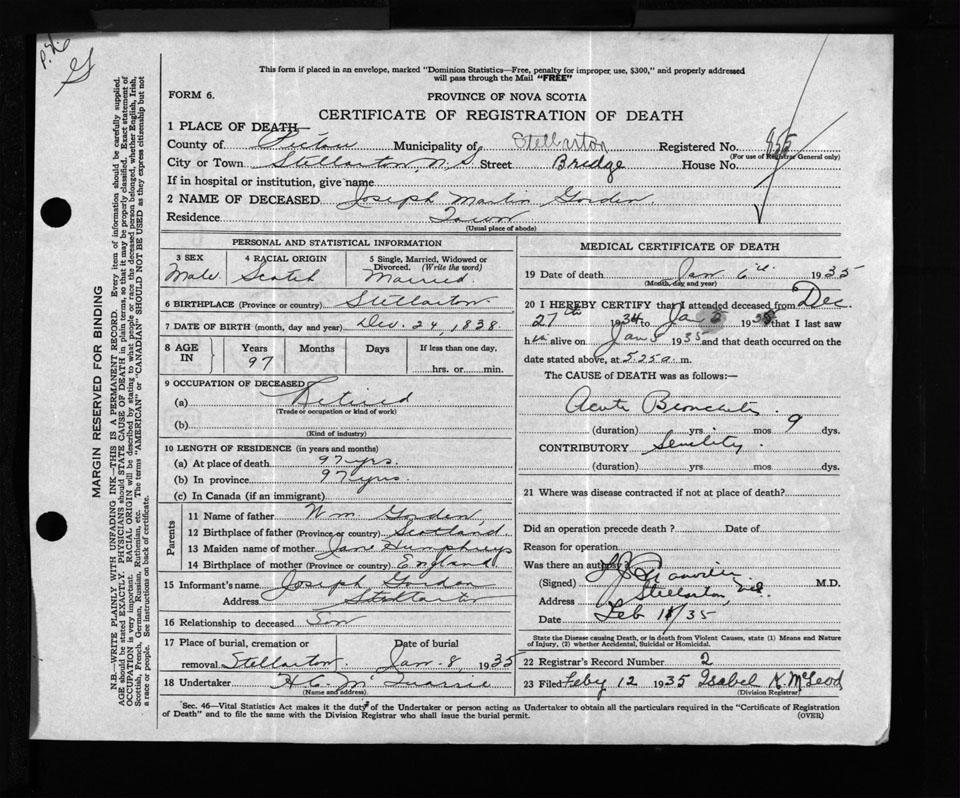 P. N.
G
This form if placed in an envelope, marked "Dominion Statistics—Free, penalty for improper use, $300," and properly addressed
will pass through the Mail "FREE"
FORM 6.
PROVINCE OF NOVA SCOTIA
CERTIFICATE OF REGISTRATION OF DEATH
1 PLACE OF DEATH—
County of Pictou Municipality of Stellarton Registered No. 955
(For use of Registrar General only)
City or Town Stellarton, N.S. Street Bridge House No.
If in hospital or institution, give name
2 NAME OF DECEASED Joseph Martin Gorden.
Residence Town
(Usual place of abode)
PERSONAL AND STATISTICAL INFORMATION
3 SEX 4 RACIAL ORIGIN 5 Single, Married, Widowed or Divorced. (Write the word)
Male Scotch Married.
6 BIRTHPLACE (Province or country) Stellarton
7 DATE OF BIRTH (month, day and year) Dec. 24, 1838.
8 AGE IN Years Months Days If less than one day,
97 hrs. or min.
9 OCCUPATION OF DECEASED
(a) Retired
(Trade or occupation or kind of work)
(b)
(Kind of industry)
10 LENGTH OF RESIDENCE (in years and months)
(a) At place of death 97 yrs.
(b) In province 97 yrs.
(c) In Canada (if an immigrant)
Parents
11 Name of father Wm. Gorden,
12 Birthplace of father (Province or country) Scotland
13 Maiden name of mother Jane Humphreys
14 Birthplace of mother (Province or country) England
15 Informant's name Joseph Gorden
Address Stellarton
16 Relationship to deceased Son
17 Place of burial, cremation or Date of burial
removal Stellarton. Jan. 8, 1935
18 Undertaker H.C. McQuarrie
(Name and address)
MEDICAL CERTIFICATE OF DEATH
19 Date of death Jan 6th 1935
(Month, day and year)
20 I HEREBY CERTIFY that I attended deceased from Dec.
27th 1934 to Jan 5 1935 that I last saw
h alive on Jan 5 1935 and that death occurred on the
date stated above, at 5.25 a. m.
The CAUSE of DEATH was as follows:—
Acute Bronchitis.
(duration) yrs. mos. 9 dys.
CONTRIBUTORY Senility.
(duration) yrs. mos. dys.
21 Where was disease contracted if not at place of death?
Did an operation precede death? Date of
Reason for operation
Was there an autopsy?
(Signed) M.D.
Address Stellarton, N.S.
Date Feb 11/35
State the Disease causing Death, or in death from Violent Causes, state (1) Means and Nature
of Injury, (2) whether Accidental, Suicidal or Homicidal.
22 Registrar's Record Number 2
23 Filed Feby 12 1935 Isabel K. McLeod
(Division Registrar)
Sec. 46—Vital Statistics Act makes it the duty of the Undertaker or person acting as Undertaker to obtain all the particulars required in the "Certificate of Registration
of Death" and to file the same with the Division Registrar who shall issue the burial permit.
(OVER)
MARGIN RESERVED FOR BINDING
N.B.—WRITE PLAINLY WITH UNFADING INK—THIS IS A PERMANENT RECORD. Every item of information should be carefully supplied.
AGE should be stated EXACTLY. PHYSICIANS should STATE CAUSE OF DEATH in plain terms, so that it may be properly classified. Exact statement of
OCCUPATION is very important. RACIAL ORIGIN will be described by stating to what people or race the deceased person belonged, whether English, Irish,
Scottish, French, German, Russian, Ruthenian, etc. The terms "AMERICAN" or "CANADIAN" SHOULD NOT BE USED as they express citizenship but not
a race or people. See instructions on back of certificate.